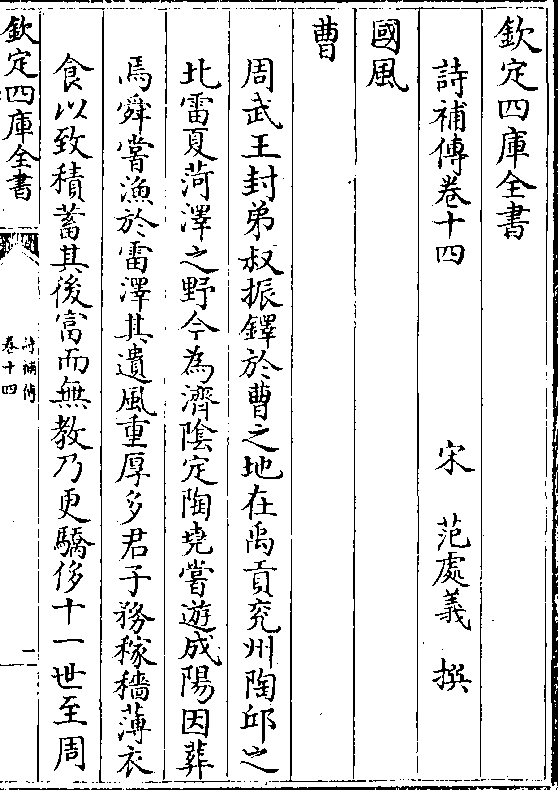 欽定四庫全書
詩補傳卷十四
宋 范處義 撰
國風
曹
周武王封弟叔振鐸於曹之地在禹貢兖州陶邱之
北雷夏菏澤之野今為濟陰定陶堯嘗遊成陽因葬
焉舜嘗漁於雷澤其遺風重厚多君子務稼穡薄衣
食以致積蓄其後富而無教乃更驕侈十一世至周
欽定四庫全書
詩補傳
卷十四
一